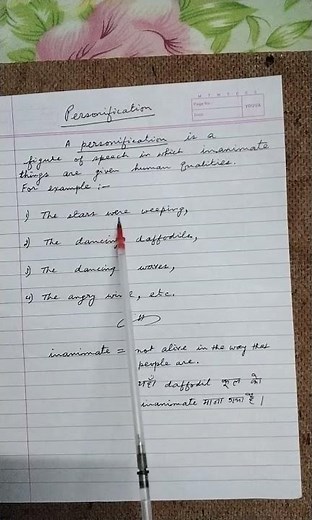 Personification
A personification is a
figure of speech in which inanimate
things are given human qualities.
For example :-
1) The stars were weeping,
2) The dancing daffodils,
3) The dancing waves,
4) The angry wind, etc.
inanimate = not alive in the way that
people are.
यहाँ daffodil फूल को
inanimate माना गया है।